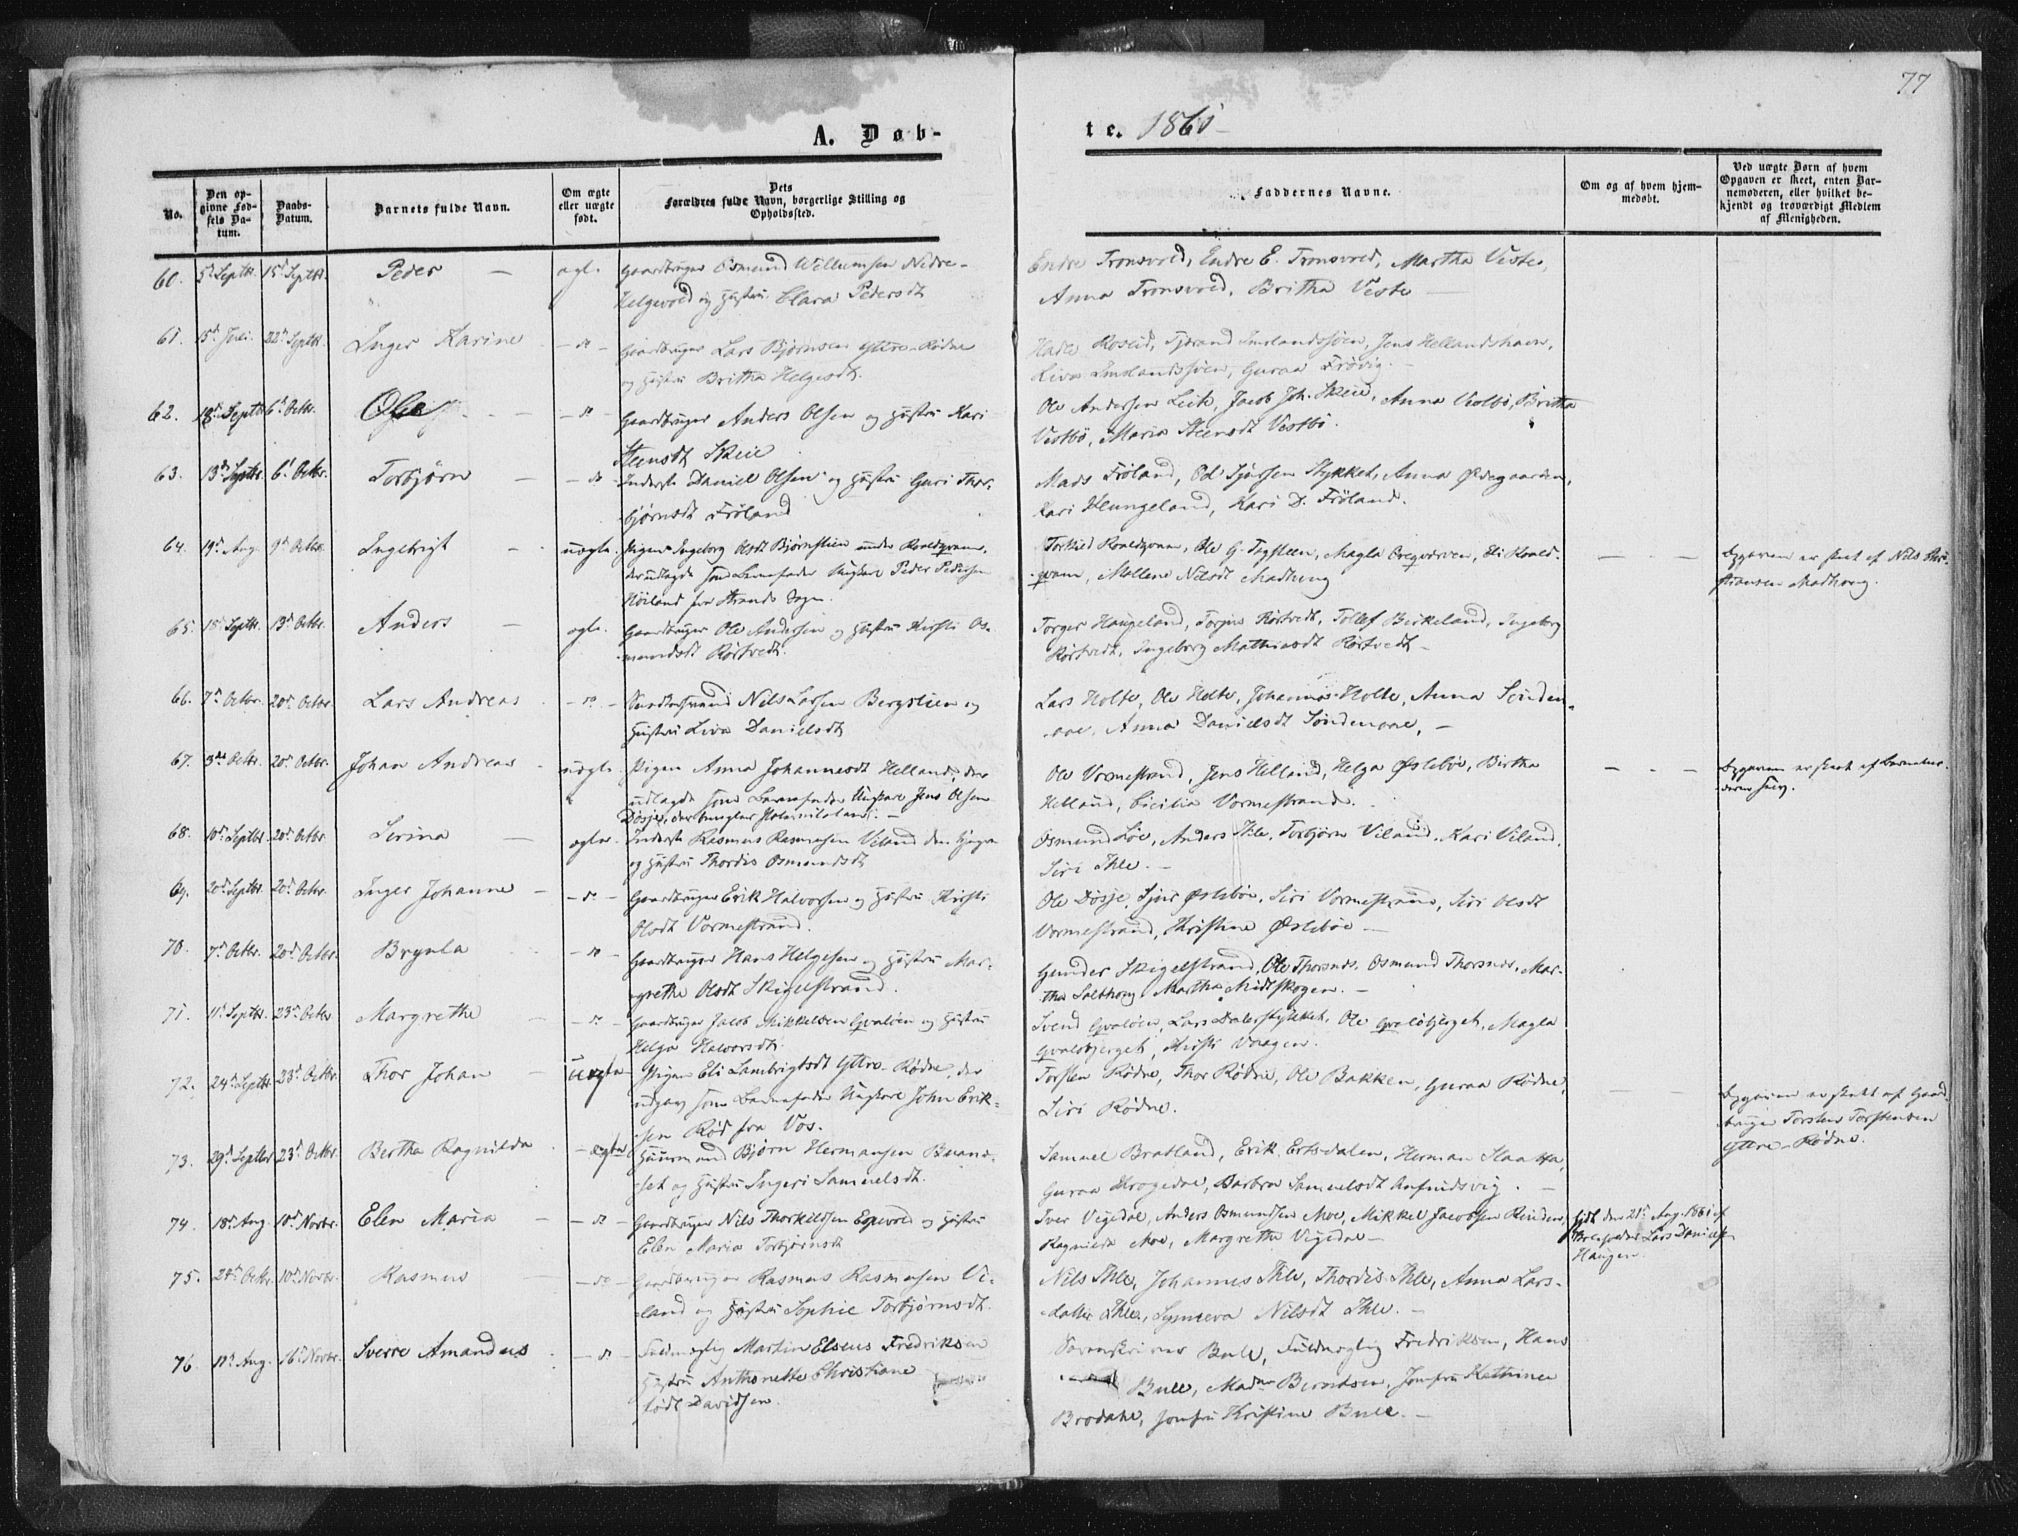 77
A. Døb-
te. 1861
No.
Den op-
givne Fød-
sels Da-
tum.
Daabs-
Datum.
Barnets fulde Navn.
Om ægte
eller uægte
født.
Dets
Forældres fulde Navn, borgerlige Stilling og
Opholdssted.
Faddernes Navne.
Om og af hvem hjem-
medøbt.
Ved uægte Børn af hvem
Opgaven er skeet, enten Bar-
nemoderen, eller hvilket be-
kjendt og troværdigt Medlem
af Menigheden.
60. 5d Septbr. 15d Septbr. Peder — ægte Gaardbruger Osmund Willumsen Nedre-
Helgevold og Hustru Clara Pedersdt
Endre Tronsvold, Endre E. Tronsvold, Martha Veste,
Anna Tronsvold, Britha Veste —
61. 15d Juli. 22d Septbr. Inger Karine — do — Gaardbruger Lars Bjørnsen Yttre-Rødne
og Hustru Britha Helgesdt.
Roseid, Imslandssøen, Jens Hellandshavn,
Liva Imslandssøen, Guraa Frøvig. —
62. 18d Septbr 6d Octbr. Ole — do — Gaardbruger Anders Olsen og Hustru Kari
Steensdt Skeie
Ole Andersen Leite, Jacob Joh. Skeie, Anna Vestbø, Britha
Vestbø, Maria Steensdt Vestbø.
63. 13d Septbr. 6d Octbr. Torbjørn — do — Inderste Daniel Olsen og Hustru Guri Thor-
bjørnsdt Frøland
Mads Frøland, Ed Sjursen Stykket, Anna Ødegaarden,
Kari Klungeland, Kari D. Frøland.
64. 19d Aug. 9d Octbr. Ingebrigt — uægte. Pigen Ingeborg Olsdt Bjørnstien under Roaldqvam,
der udlagde som Barnefader Ungkarl Peder Pedersen
Nøiland fra Strands Sogn.
Torkild Roaldqvam, Ole G. Tegsteen, Magla Øreqværven, Eli Roald-
qvam, Mallene Nilsdt Madhoug — — Opgaven er skeet af Nils Chri-
stiansen Madhoug.
65. 18d Septbr. 13d Octbr. Anders — ægte. Gaardbruger Ole Andersen og Hustru Kirsti Os-
mundsdt Rørtvedt.
Torger Haugeland, Torgius Rørtvedt, Tollef Birkeland, Ingeborg
Rørtvedt, Ingeborg Mathiasdt Rørtvedt —
66. 7d Octbr. 20d Octbr Lars Andreas — do — Nils Larsen Bergslien og
Hustru Liva Danielsdt
Lars Holte, Ole Holte, Johannes Holte, Anna Sønden-
aae, Anna Danielsdt Søndenaae, —
67. 3die Octbr. 20d Octbr. Johan Andreas — uægte. Pigen Anna Johannesdt Helland, der
udlagde som Barnefader Ungkarl Jens Olsen
Døsje,
Ole Vormestrand, Jens Helland, Helga Østebøe, Birtha
Helland, Cicilia Vormestrand. — — Opgaven er skeet af Barnemo-
deren selv.
68. 10d Septbr 20d Octbr. Serina — ægte. Inderste Rasmus Rasmusen Viland den yngre
og Hustru Thordis Osmundsdt
Osmund Løe, Anders Thle, Torbjørn Viland, Kari Viland,
Siri Thle. —
69. 20d Septbr. 20d Octbr. Inger Johanne — do — Gaardbruger Erik Halvorsen og Hustru Kirsti
Olsdt Vormestrand.
Ole Døsje, Sjur Østebøe, Siri Vormestrand, Siri Olsdt
Vormestrand, Christine Østebøe —
70. 7d Octbr. 20d Octbr. Brynla — do — Gaardbruger Hans Helgesen og Hustru Mar-
grethe Olsdt Skigelstrand.
Gunder Skigelstrand, Ole Thorsnes, Osmund Thorsnes, Mar-
tha Salthoug, Martha Midtskogen. —
71. 11d Septbr. 23d Octbr Margrethe — do — Gaardbruger Jacob Mikkelsen Qvaløen og Hustru
Helga Halvorsdt.
Svend Qvaløen, Lars Dalestykket, Ole Qvaløbjerget, Magla
Qvaløbjerget, Kirsti Vaagen.
72. 24d Septbr. 23d Octbr. Thor Johan — uægte Pigen Eli Lambrigtsdt Yttre-Rødne, der
udgav som Barnefader Ungkarl John Erik-
sen Rød fra Vos.
Torsten Rødne, Thor Rødne, Ole Bakken, Guraa Rødne,
Siri Rødne. — Opgaven er skeet af Gaard-
bruger Torsten Torstensen
Yttre-Rødne.
73. 29d Septbr 23d Octbr. Bertha Ragnilda — ægte Huusmand Bjørn Hermansen Buane-
set og Hustru Ingeri Samuelsdt.
Samuel Bratland, Erik Ertsdalen, Herman Slaatta,
Guraa Krogedal, Barbra Samuelsdt Anfindsvig. —
74. 18d Aug. 10d Novbr. Elen Maria — do — Gaardbruger Nils Thorkildsen Espevold og Hustru
Elen Maria Torbjørnsdt
Iver Vigedal, Anders Osmundsen Moe, Mikkel Jacobsen Rinden,
Ragnilda Moe, Margretha Vigedal — Hjdt. den 21d Aug. 1861 af
Lars Daniels
Haugen.
75. 24d Octbr. 10d Novbr. Rasmus — do — Gaardbruger Rasmus Rasmusen Vi-
land og Hustru Sophie Torbjørnsdt.
Nils Thle, Johannes Thle, Thordis Thle, Anna Lars-
datter Thle, Synneva Nilsdt Thle. —
76. 11d Aug. 16d Novbr. Sverre Amandus — do — Fuldmægtig Martin Elseus Fredriksen
Hustru Anthonette Christiane
født Davidsen.
Sorenskriver Bull, Fuldmægtig Fredriksen, Hans
Bull, Madme Berntsen, Jomfru Kathrine
Brodahl, Jomfru Kristine Bull. —